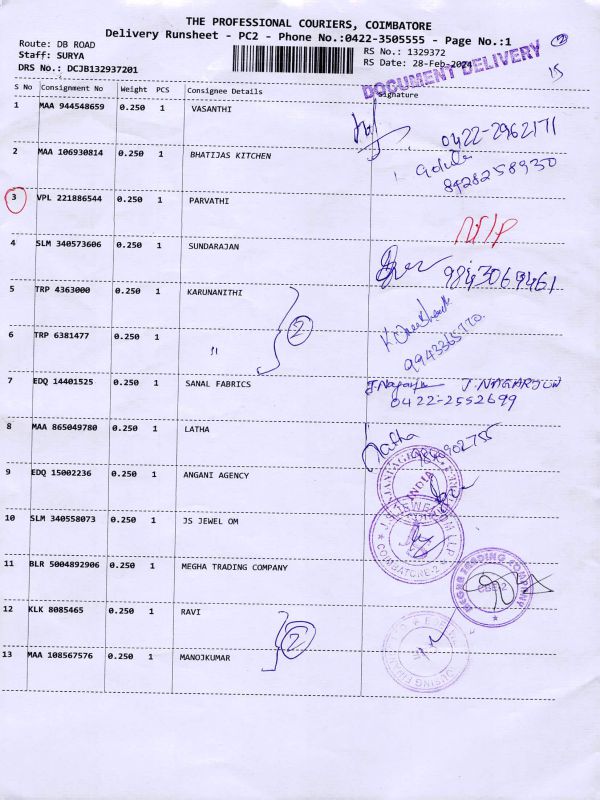 THE PROFESSIONAL COURIERS, COIMBATORE
Delivery Runsheet - PC2 - Phone No.:0422-3505555 - Page No.:1
Route: DB ROAD
Staff: SURYA
DRS No.: DCJB132937201
RS No.: 1329372
RS Date: 28-Feb-2024
DOCUMENT DELIVERY
2
15
S No Consignment No Weight PCS Consignee Details Signature
1 MAA 944548659 0.250 1 VASANTHI
0422-2962171
2 MAA 106930814 0.250 1 BHATIJAS KITCHEN
8428258930
3 VPL 221886544 0.250 1 PARVATHI
4 SLM 340573606 0.250 1 SUNDARAJAN
5 TRP 4363000 0.250 1 KARUNANITHI
2
6 TRP 6381477 0.250 1 "
9943365770
7 EDQ 14401525 0.250 1 SANAL FABRICS
J. NAGARJUN
0422-2552699
8 MAA 865049780 0.250 1 LATHA
Latha
9 EDQ 15002236 0.250 1 ANGANI AGENCY
INDIA
10 SLM 340558073 0.250 1 JS JEWEL OM
COIMBATORE-2
11 BLR 5004892906 0.250 1 MEGHA TRADING COMPANY
MEGHA TRADING COMPANY
CBE-2
12 KLK 8085465 0.250 1 RAVI
2
13 MAA 108567576 0.250 1 MANOJKUMAR